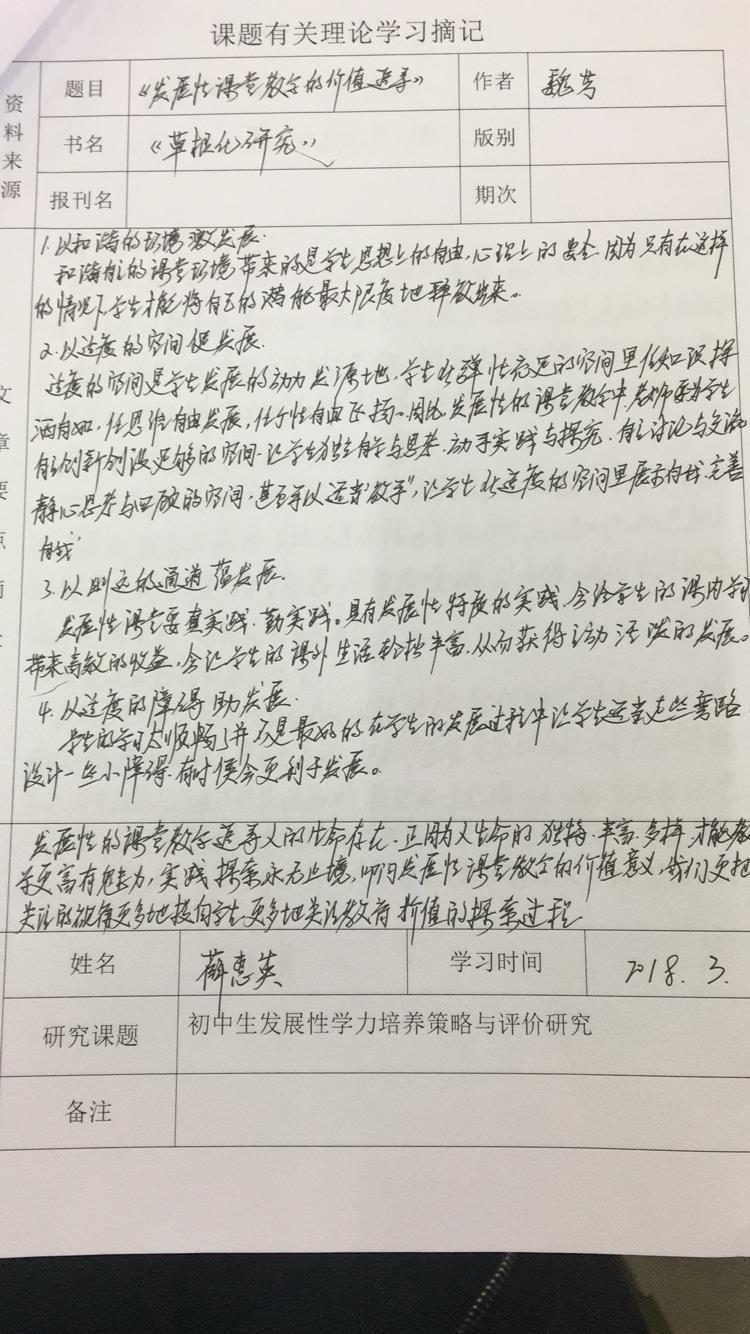 课题有关理论学习摘记
资料来源
题目 《发展性课堂教学的价值追寻》 作者 魏芳
书名 《草根化研究》 版别
报刊名 期次
文章要点摘
1.以和谐的环境激发展.
和谐自主的课堂环境带来的是学生思想上的自由,心理上的安全.因为只有在这样
的情况下,学生才能将自己的潜能最大限度地释放出来。
2.以适度的空间促发展.
适度的空间是学生发展的动力发源地,学生在弹性充足的空间里任知识挥
洒自如,任思维自由发展,任个性自由飞扬。因此,发展性的课堂教学中,老师要为学生
自主创新创设足够的空间.让学生独立自学与思考.动手实践与探究.自主讨论与交流
静心思考与回顾的空间,甚至可以适当“放手”,让学生在适度的空间里展示自我.完善
自我
3.以别道的通道蕴发展.
发展性课堂要真实践.勤实践。具有发展性特质的实践,会给学生的课内学习
带来高效的收益,会让学生的课外生活轻松丰富,从而获得主动活泼的发展。
4.以适度的障碍助发展.
学生的学习太顺畅了并不是最好的.在学生的发展过程中让学生适当走些弯路
设计一些小障碍.有时候会更利于发展。
发展性的课堂教学追寻人的生命存在.正因为人生命的独特.丰富.多样,才能教
学更富有魅力,实践探索永无止境,叩问发展性课堂教学的价值意义,我们更把
关注的视角更多地投向学生更多地关注教育价值的探索过程
姓名 薛惠英 学习时间 2018.3.
研究课题 初中生发展性学力培养策略与评价研究
备注